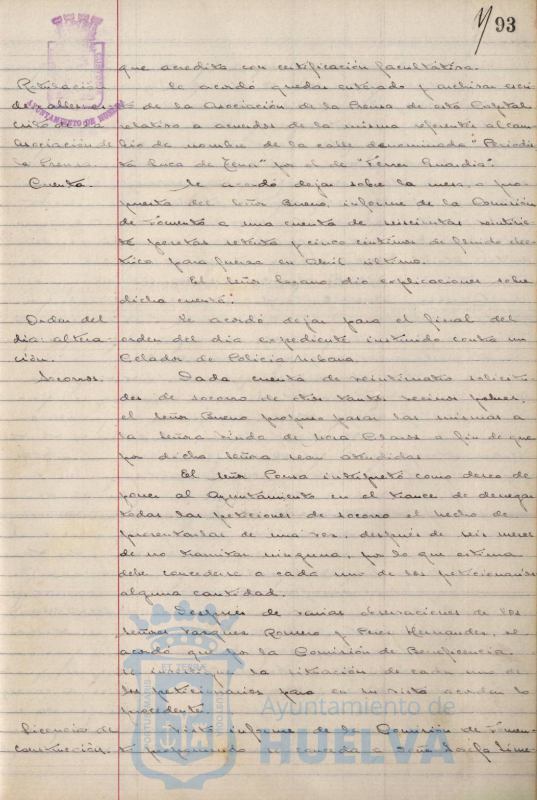 93
que acredita con certificación facultativa.
Se acordó quedar enterado y archivar escri-
to de la Asociación de la Prensa de esta Capital
relativo a acuerdos de la misma referente al cam-
bio de nombre de la calle denominada "Periodis
ta Luca de Tena" por el de "Ferrer Guardia".
Cuenta.
Se acordó dejar sobre la mesa, a pro-
puesta del Señor Bueno, informe de la Comisión
de Fomento a una cuenta de seiscientas veintisie-
te pesetas setenta y cinco céntimos de fluido eléc-
trico para fuerza en Abril último.
El Señor Lozano dió explicaciones sobre
dicha cuenta.
Orden del
día: altera-
ción.
Se acordó dejar para el final del
orden del día expediente instruido contra un
Celador de Policía Urbana.
Socorros.
Dada cuenta de veinticuatro solicitu-
des de socorro de otros tantos vecinos pobres,
el Señor Bueno propuso pasar las mismas a
la Señora Viuda de Mora Claros a fin de que
por dicha Señora sean atendidas.
El Señor Ponsa interpretó como deseo de
poner al Ayuntamiento en el trance de denegar
todas las peticiones de socorro el hecho de
presentarlas de una vez, después de seis meses
de no tramitar ninguna, por lo que estima
debe concederse a cada uno de los peticionarios
alguna cantidad.
Después de varias observaciones de los
Señores Vázquez Romero y Pérez Hernández, se
acordó que por la Comisión de Beneficencia
se investigue la situación de cada uno de
los peticionarios para en su vista acordar lo
procedente.
Licencia de
construcción.
Visto informe de la Comisión de Fomen-
to proponiendo se conceda a Doña Josefa Jime-
AYUNTAMIENTO DE HUELVA
Ayuntamiento de
HUELVA